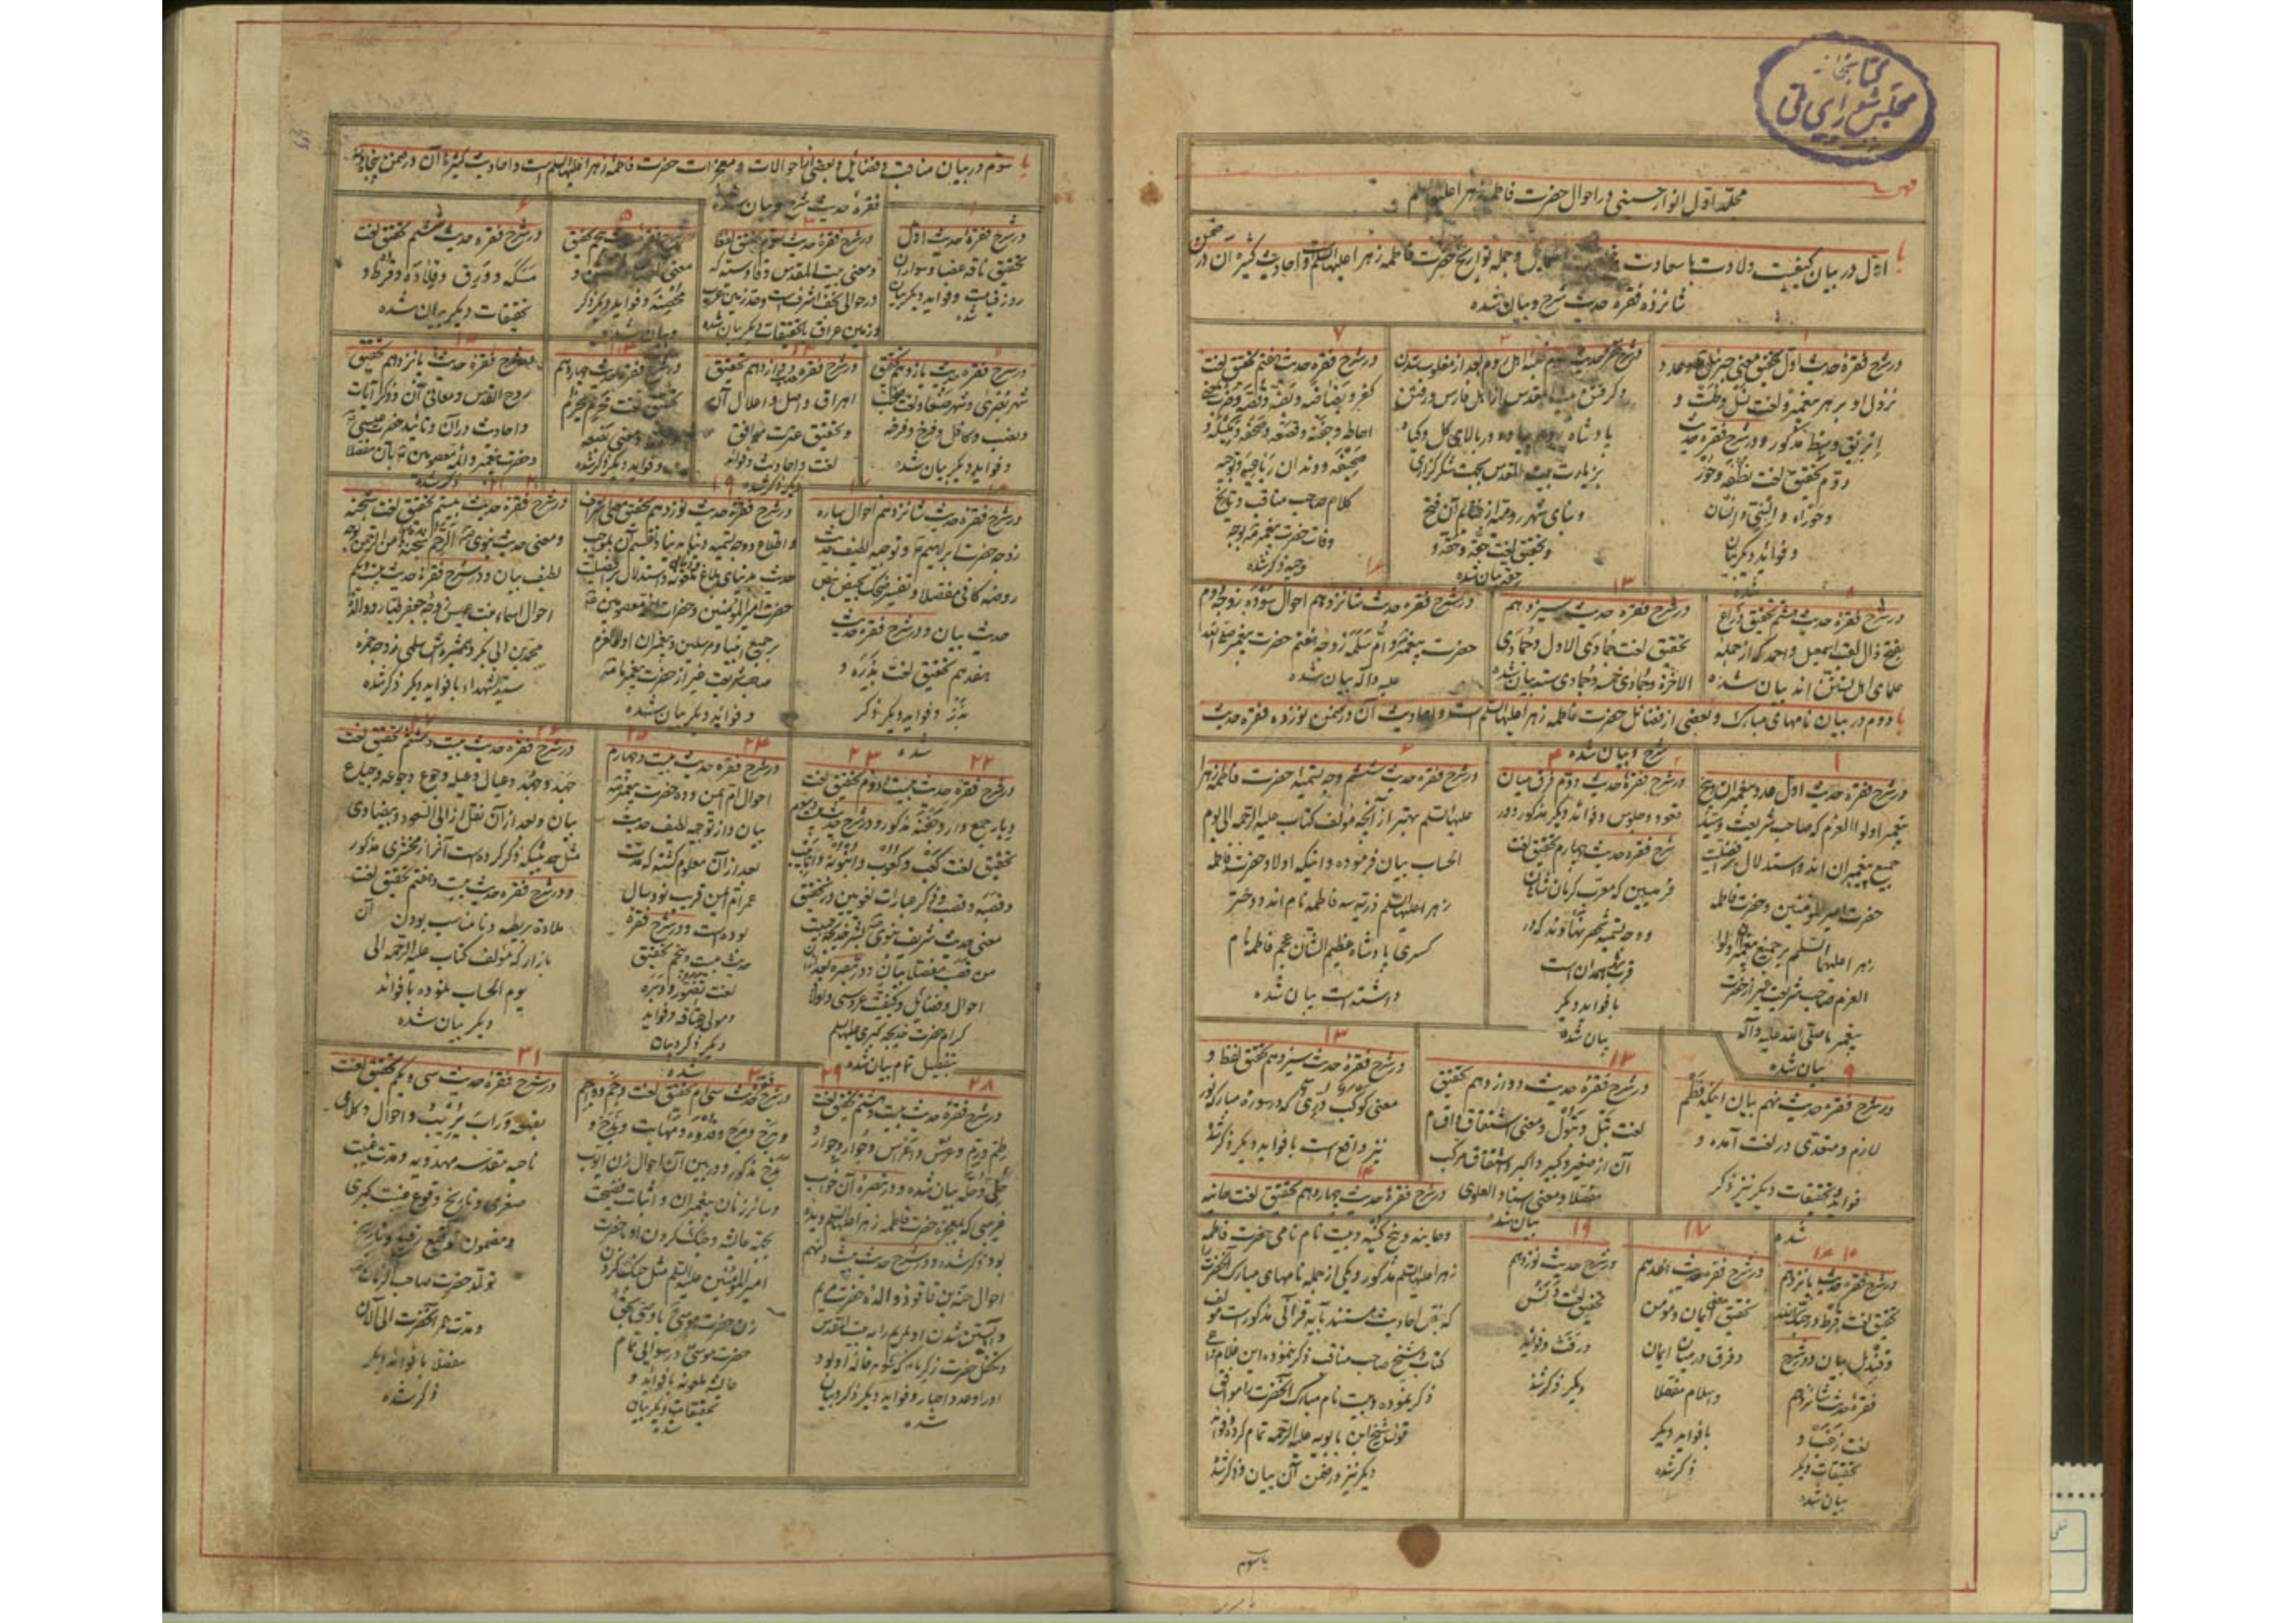 کتابخانه
مجلس شورای ملی
فهرست
مجلد اول انوار حسینی در احوال حضرت فاطمه زهرا علیها السلم
اول در بیان کیفیت ولادت با سعادت و جمله تواریخ حضرت فاطمه زهرا علیها السلم و احادیث کثیره آن در ضمن
شانزده فقره حدیث شرح و بیان شده
۱
در شرح فقره حدیث اول تحقیق معنی جبرئیل و
نزول او بر هر پیغمبر و لغت
ابریق و بط مذکور و در شرح فقره حدیث
دوم تحقیق لغت نطفه و حور
و حوراء و انسی و انسان
و فواید دیگر بیان
شده
۳
غلبه اهل روم بعد از مغلوب شدن
و گرفتن بیت المقدس از اهل فارس و رفتن
پادشاه روم پیاده در بالای گل و گیاه
بزیارت بیت المقدس بجهت شکرگزاری
و بنای شهر رومیه از غنایم آن فتح
و تحقیق لغت حقه و
بیان شده
۷
در شرح فقره حدیث هفتم تحقیق لغت
احاطه و جفنه و قصعه و صحفه و
صحیفه و دندان رباعیه و توجیه
کلام صاحب مناقب و تاریخ
وفات حضرت پیغمبر بوجه
وجیه ذکر شده
۸
در شرح فقره حدیث هشتم تحقیق ذراع
بفتح ذال لقب اسمعیل و احمد که از جمله
علمای اهل تسنن اند بیان شده
۱۳
در شرح فقره حدیث سیزدهم
تحقیق لغت جمادی الاول و جمادی
الاخره و جمادی خمسه و جمادی سته بیان شده
۱۶
در شرح فقره حدیث شانزدهم احوال سوده زوجه دوم
حضرت پیغمبر و ام سلمه زوجه هفتم حضرت پیغمبر صلی الله
علیه و اله بیان شده
دوم در بیان نامهای مبارک و بعضی از فضائل حضرت فاطمه زهرا علیها السلم است و احادیث آن در ضمن نوزده فقره حدیث
شرح و بیان شده
۱
در شرح فقره حدیث اول عدد پیغمبران و پنج
پیغمبر اولو العزم که صاحب شریعت و سید
جمیع پیغمبران اند و استدلال بر افضلیت
حضرت امیر المومنین و حضرت فاطمه
زهرا علیهما السلم بر جمیع پیغمبران اولو
العزم صاحب شریعت غیر از حضرت
پیغمبر ما صلی الله علیه و آله
بیان شده
۲ ۴
در شرح فقره حدیث دوم فرق میان
قعود و جلوس و فواید دیگر مذکور و در
شرح فقره حدیث چهارم تحقیق لغت
قرمیسین که معرب کرمان شاهان
و وجه تسمیه شهر نهاوند که در
قرب همدان است
با فواید دیگر
بیان شده
۶
در شرح فقره حدیث ششم وجه تسمیه حضرت فاطمه زهرا
علیها السلم بهتر از آنچه مؤلف کتاب علیه الرحمه الی یوم
الحساب بیان فرموده و اینکه اولاد حضرت فاطمه
زهرا علیها السلم ذریه سه فاطمه نام اند و دختر
کسری پادشاه عظیم الشان عجم فاطمه نام
داشته است بیان شده
۹
در شرح فقره حدیث نهم بیان اینکه فطم
لازم و متعدی در لغت آمده و
فواید و تحقیقات دیگر نیز ذکر
شده
۱۲
در شرح فقره حدیث دوازدهم تحقیق
لغت بتل و بتول و معنی اشتقاق و اقسام
آن از صغیر و کبیر و اکبر و اشتقاق مرکب
مفصلا و معنی اسناد العلوی
بیان شده
۱۳
در شرح فقره حدیث سیزدهم تحقیق لفظ و
معنی کوکب دری که در سوره مبارکه نور
نیز واقع است با فواید دیگر ذکر شد
۱۴
در شرح فقره حدیث چهاردهم تحقیق لغت حانیه
و حانیه و پنج کنیه و بیست نام نامی حضرت فاطمه
زهرا علیها السلم مذکور و یکی از جمله نامهای مبارک آنحضرت را
که بنقل احادیث مستند بآیه قرآنی مذکور است مؤلف
کتاب و شیخ صاحب مناقب ذکر ننموده این غلام
ذکر نموده و بیست نام مبارک آنحضرت را موافق
قول شیخ ابن بابویه علیه الرحمه تمام کرده و فواید
دیگر نیز در ضمن آن بیان و ذکر شد
۱۵ ۱۶
در شرح فقره حدیث پانزدهم
تحقیق لغت قرط و
و قندیل بیان و در شرح
فقره حدیث شانزدهم
لغت زغب و
تحقیقات دیگر
بیان شد
۱۷
در شرح فقره حدیث هفدهم
تحقیق معنی ایمان و مومن
و فرق در میان ایمان
و اسلام مفصلا
با فواید دیگر
ذکر شده
۱۹
در شرح حدیث نوزدهم
تحقیق لغت
و رفث و فواید
دیگر ذکر شد
باب سوم
سوم در بیان مناقب و فضائل و بعضی از احوالات و معجزات حضرت فاطمه زهرا علیها السلم است و احادیث کثیره آن در ضمن پنجاه و
فقره حدیث شرح و بیان شده
۱
در شرح فقره حدیث اول
تحقیق ناقه عضبا و سواران
روز قیامت و فواید دیگر بیان
شد
۳
در شرح فقره حدیث سوم تحقیق لفظ
و معنی بیت المقدس و قادسیه که
در حوالی نجف اشرف است و حد زمین عرب
و زمین عراق با تحقیقات دیگر بیان شده
۵
پنجم تحقیق
معنی
محصنه و فواید دیگر ذکر
و بیان شده
۶
در شرح فقره حدیث ششم تحقیق لغت
مسکه و ورق و قلاده و قرط و
تحقیقات دیگر بیان شده
۱۱
در شرح فقره حدیث یازدهم تحقیق
شهر بصری و شهر صنعا و لغت
و نصب و کاهل و فرخ و فرخه
و فواید دیگر بیان شده
۱۲
در شرح فقره حدیث دوازدهم تحقیق
اهراق و اصل و اعلال آن
و تحقیق عترت موافق
لغت و احادیث و فواید
دیگر ذکر شده
۱۴
در شرح فقره حدیث چهاردهم
تحقیق لغت
و معنی مقنعه
و فواید دیگر ذکر شده
۱۵
در شرح فقره حدیث پانزدهم تحقیق
روح القدس و معانی آن و ذکر آیات
و احادیث در آن و تائید حضرت عیسی
و حضرت پیغمبر و ائمه معصومین بآن مفصلا
ذکر شده
۱۶ ۱۷
در شرح فقره حدیث شانزدهم احوال ساره
زوجه حضرت ابراهیم و توجیه لطیف حدیث
روضه کافی مفصلا و تفسیر ضحک بحیض بنص
حدیث بیان و در شرح فقره حدیث
هفدهم تحقیق لغت بذره و
بذر و فواید دیگر ذکر
شده
۱۹
در شرح فقره حدیث نوزدهم تحقیق معنی اشراف
و اطلاع و وجه تسمیه دنیا به دنیا و تقسیم آن بموجب
حدیث به دنیای بلاغ و ملعونه و استدلال بر افضلیت
حضرت امیر المومنین و حضرات ائمه معصومین
بر جمیع انبیا و مرسلین و پیغمبران اولو العزم
صاحب شریعت غیر از حضرت پیغمبر ما
و فواید دیگر بیان شده
۲۰ ۲۱
در شرح فقره حدیث بیستم تحقیق لغت شجنه
و معنی حدیث نبوی الرحم شجنة من الرحمن بوجه
لطیف بیان و در شرح فقره حدیث بیست و یکم
احوال اسماء بنت عمیس زوجه جعفر طیار و والده
محمد بن ابی بکر و همشیره اش سلمی زوجه حمزه
سید الشهداء با فواید دیگر ذکر شده
۲۲ ۲۳
در شرح فقره حدیث بیست و دوم تحقیق لغت
و یار جمع دار و نخنه مذکور و در شرح حدیث بیست و سوم
تحقیق لغت کعب و کعوب و انبوبه و انابیب
و قصبه و قصب و ذکر عبارات لغویین در تحقیق
معنی حدیث شریف نبوی بشر خدیجة ببیت
من قصب مفصلا بیان و در تبصره بعد از آن
احوال و فضائل و کیفیت عروسی و اولاد
کرام حضرت خدیجه کبری علیها السلم
بتفصیل تمام بیان شده
۲۴ ۲۵
در شرح فقره حدیث بیست و چهارم
احوال ام ایمن دده حضرت پیغمبر
بیان و از توجیه لطیف حدیث
بعد از آن معلوم گشته که مدت
عمر ام ایمن قریب نود سال
بوده است و در شرح فقره
حدیث بیست و پنجم تحقیق
لغت
و مولی عتاقه و فواید
دیگر ذکر و بیان
شده
۲۶ ۲۷
در شرح فقره حدیث بیست و ششم تحقیق لغت
جهد و جهد و عیال و عیله و جوع و جوعه و جیاع
بیان و بعد از آن نقل از ابی السعود و بیضاوی
مثل حدیثیکه ذکر کرده است آنرا زمخشری مذکور
و در شرح فقره حدیث بیست و هفتم تحقیق لغت
ملاءة و ریطه و نا مناسب بودن آن
بازار که مؤلف کتاب علیه الرحمه الی
یوم الحساب نموده با فواید
دیگر بیان شده
۲۸ ۲۹
در شرح فقره حدیث بیست و هشتم تحقیق لغت
طم و رم و عرش و اعراس و جوار و جوار و
حلی و حله بیان شده و در تبصره آن خواب
غریبی که بمعجزه حضرت فاطمه زهرا علیها السلم دیده
بود ذکر شده و در شرح حدیث بیست و نهم
احوال حنه بنت فاقوذ والده حضرت مریم
و آبستن شدن او بمریم را به بیت المقدس
و تکفل حضرت زکریا که شوهر خاله او بود
او را و عدد احبار و فواید دیگر ذکر و بیان
شده
۳۰
در شرح فقره حدیث سی ام تحقیق لغت وخم و
و برح و مبرح و قدوه و مهابت و بذخ و
مذکور و در بین آن احوال زن ایوب
و سایر زنان پیغمبران و اثبات فضیحت
بجهة عایشه و جنگ کردن او با حضرت
امیر المؤمنین علیه السلم مثل جنگ کردن
زن حضرت موسی با وصی بحق
حضرت موسی و رسوایی تمام
عایشه ملعونه با فواید و
تحقیقات دیگر بیان
شده
۳۱
در شرح فقره حدیث سی و یکم تحقیق لغت
و احوال وکلای
ناحیه مقدسه مهدویه و مدت غیبت
صغری و تاریخ وقوع غیبت کبری
و مضمون توقیع رفیع و تاریخ
تولد حضرت صاحب الزمان
و مدت عمر آنحضرت الی الان
مفصلا با فواید دیگر
ذکر شده